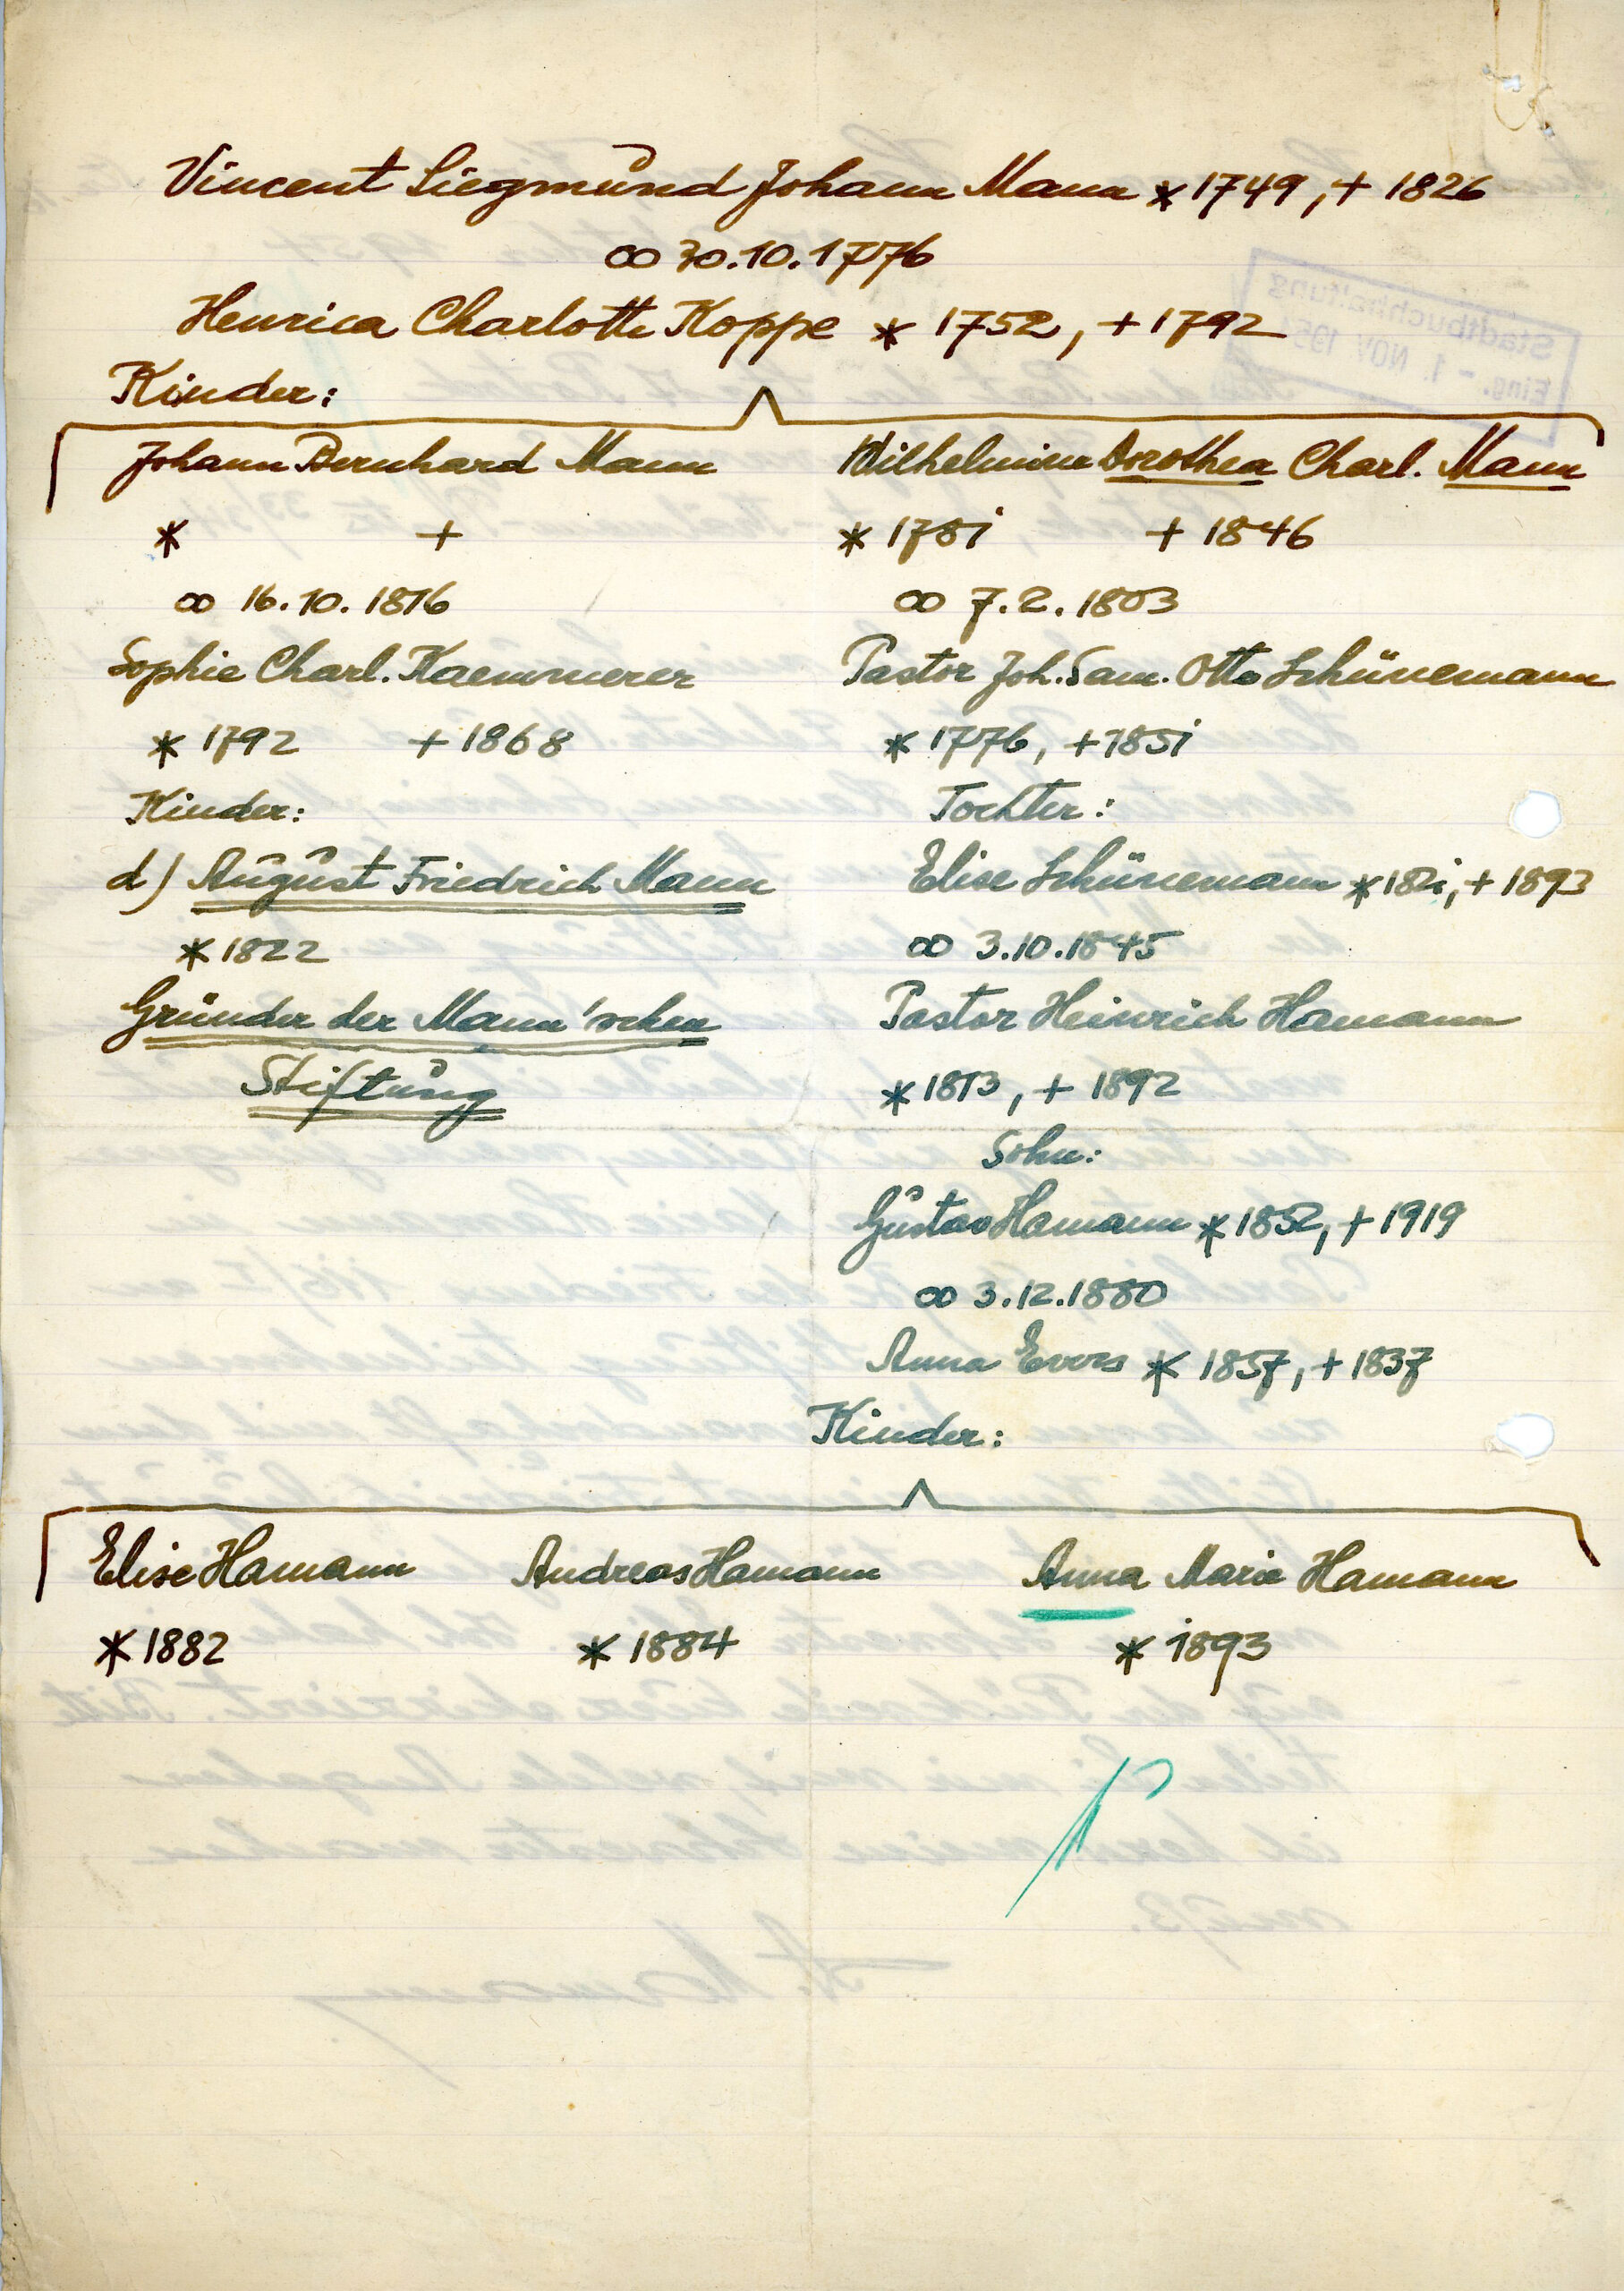 Vincent Siegmund Johann Mann * 1749, + 1826
∞ 30.10.1776
Henrica Charlotte Koppe * 1752, + 1792
Kinder:
Johann Bernhard Mann
* +
∞ 16.10.1816
Sophie Charl. Kaemmerer
* 1792 + 1868
Kinder:
d) August Friedrich Mann
* 1822
Gründer der Mann'schen
Stiftung
Wilhelmine Dorothea Charl. Mann
* 1781 + 1846
∞ 7.2.1803
Pastor Joh. Sam. Otto Schünemann
* 1776, + 1851
Tochter:
Elise Schünemann * 1821, + 1893
∞ 3.10.1845
Pastor Heinrich Hamann
* 1813, + 1892
Sohn:
Gustav Hamann * 1852, + 1919
∞ 3.12.1880
Anna Evers * 1857, + 1837
Kinder:
Elise Hamann Andreas Hamann Anna Marie Hamann
* 1882 * 1884 * 1893
Stadtbuchhaltung
Eing. - 1. NOV. 195